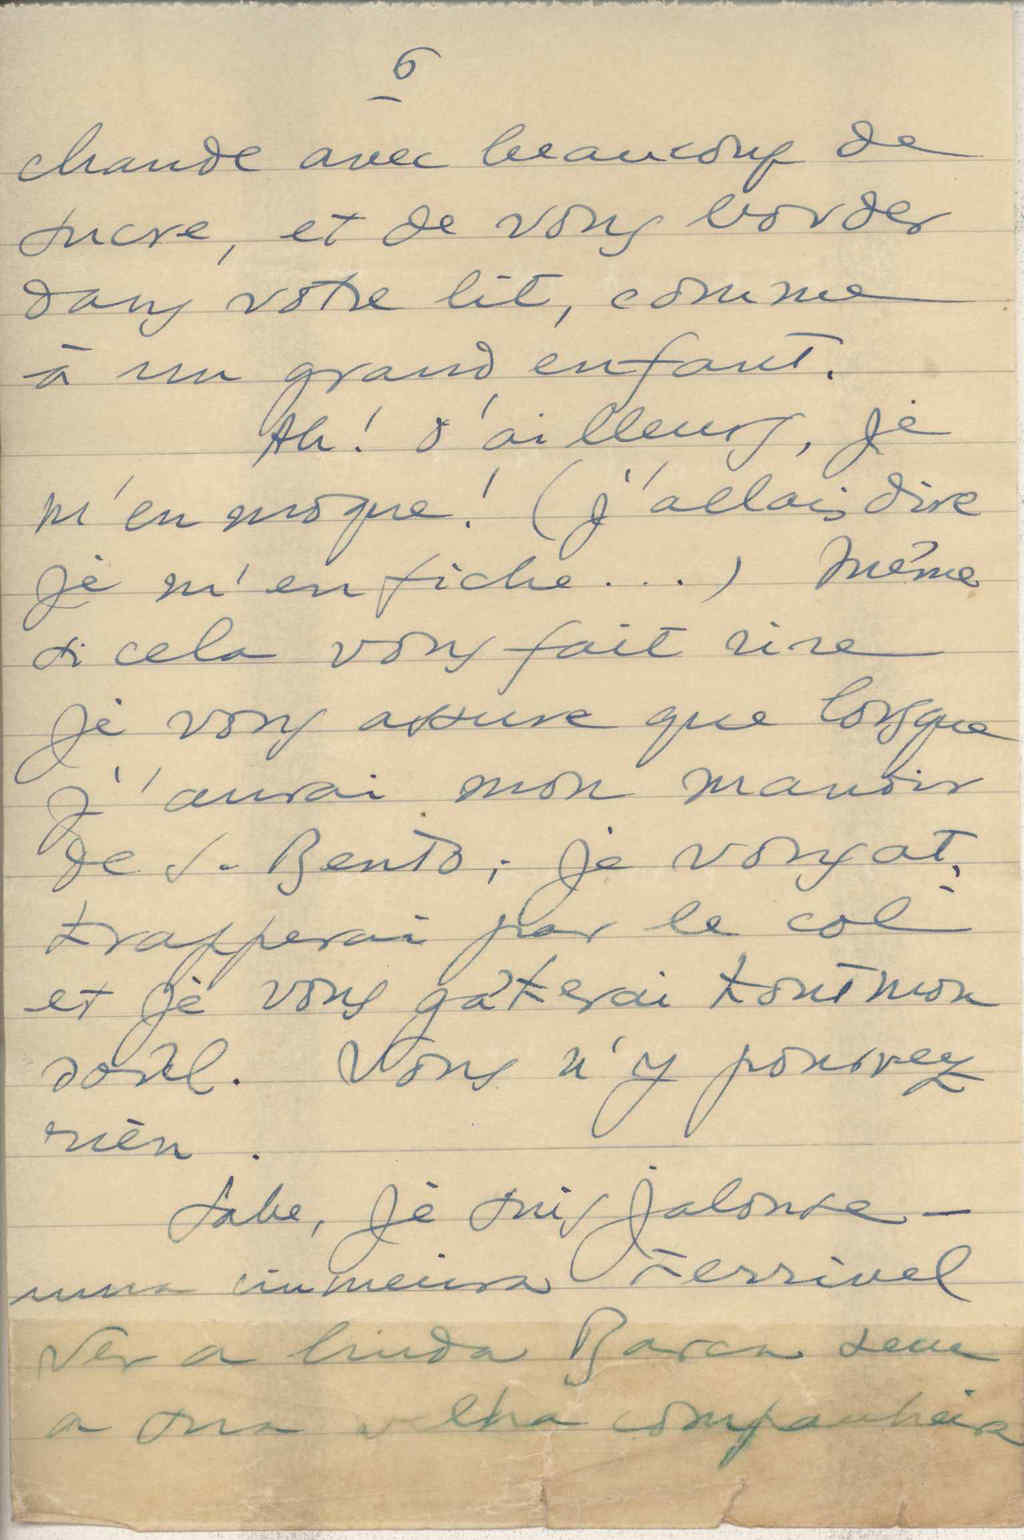 6
chaude avec beaucoup de
sucre, et de vous border
dans votre lit, comme
à un grand enfant.
Ah! d'ailleurs, je
m'en moque! (j'allais dire
je m'en fiche...) Même
si cela vous fait rire
je vous assure que lorsque
j'aurai mon manoir
de S. Bento; je vous at-
trapperai par le col
et je vous gâterai tout mon
soûl. Vous n'y pourrez
rien.
Sabe, je suis jalouse -
uma ciumeira terrivel
Ver a linda Barca sem
a sua velha companheira